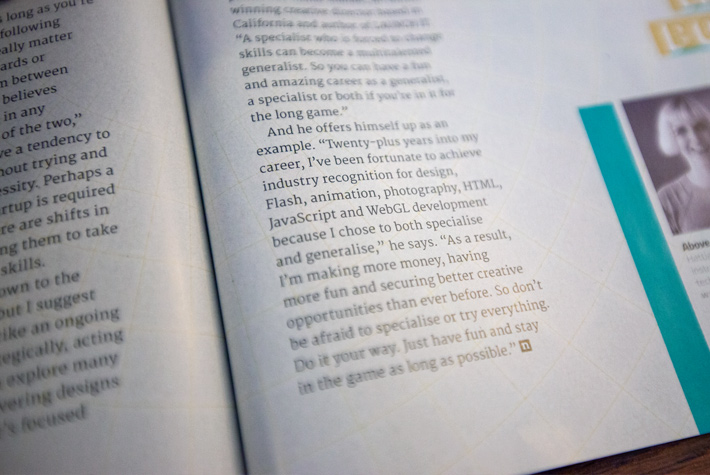 s long as you're
following
ally matter
ards or
n between
believes
in any
of the two,"
ve a tendency to
hout trying and
essity. Perhaps a
rtup is required
re are shifts in
ng them to take
skills.
own to the
but I suggest
ike an ongoing
tegically, acting
explore many
vering designs
's focused
winning creative director based in
California and author of
"A specialist who is forced to change
skills can become a multitalented
generalist. So you can have a fun
and amazing career as a generalist,
a specialist or both if you're in it for
the long game."
And he offers himself up as an
example. "Twenty-plus years into my
career, I've been fortunate to achieve
industry recognition for design,
Flash, animation, photography, HTML,
JavaScript and WebGL development
because I chose to both specialise
and generalise," he says. "As a result,
I'm making more money, having
more fun and securing better creative
opportunities than ever before. So don't
be afraid to specialise or try everything.
Do it your way. Just have fun and stay
in the game as long as possible." n
Above